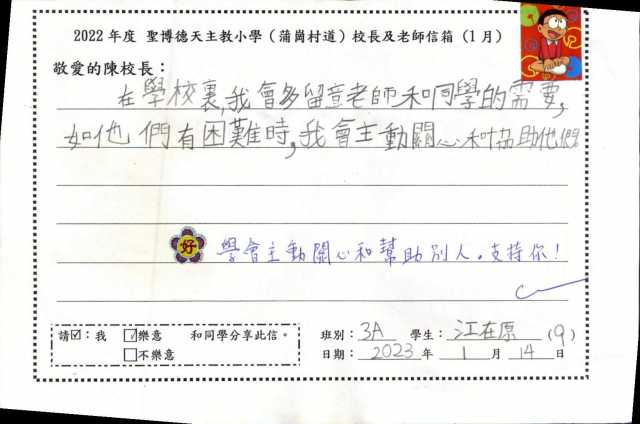 2022 年度 聖博德天主教小學（蒲崗村道）校長及老師信箱（1 月）
敬愛的陳校長：
在學校裏,我會多留意老師和同學的需要,
如他們有困難時,我會主動關心和協助他們
好 學會主動關心和幫助別人。支持你！
請☑：我 ☑樂意 和同學分享此信。
☐不樂意
班別：3A 學生：江在原 (9)
日期：2023 年 1 月 14 日